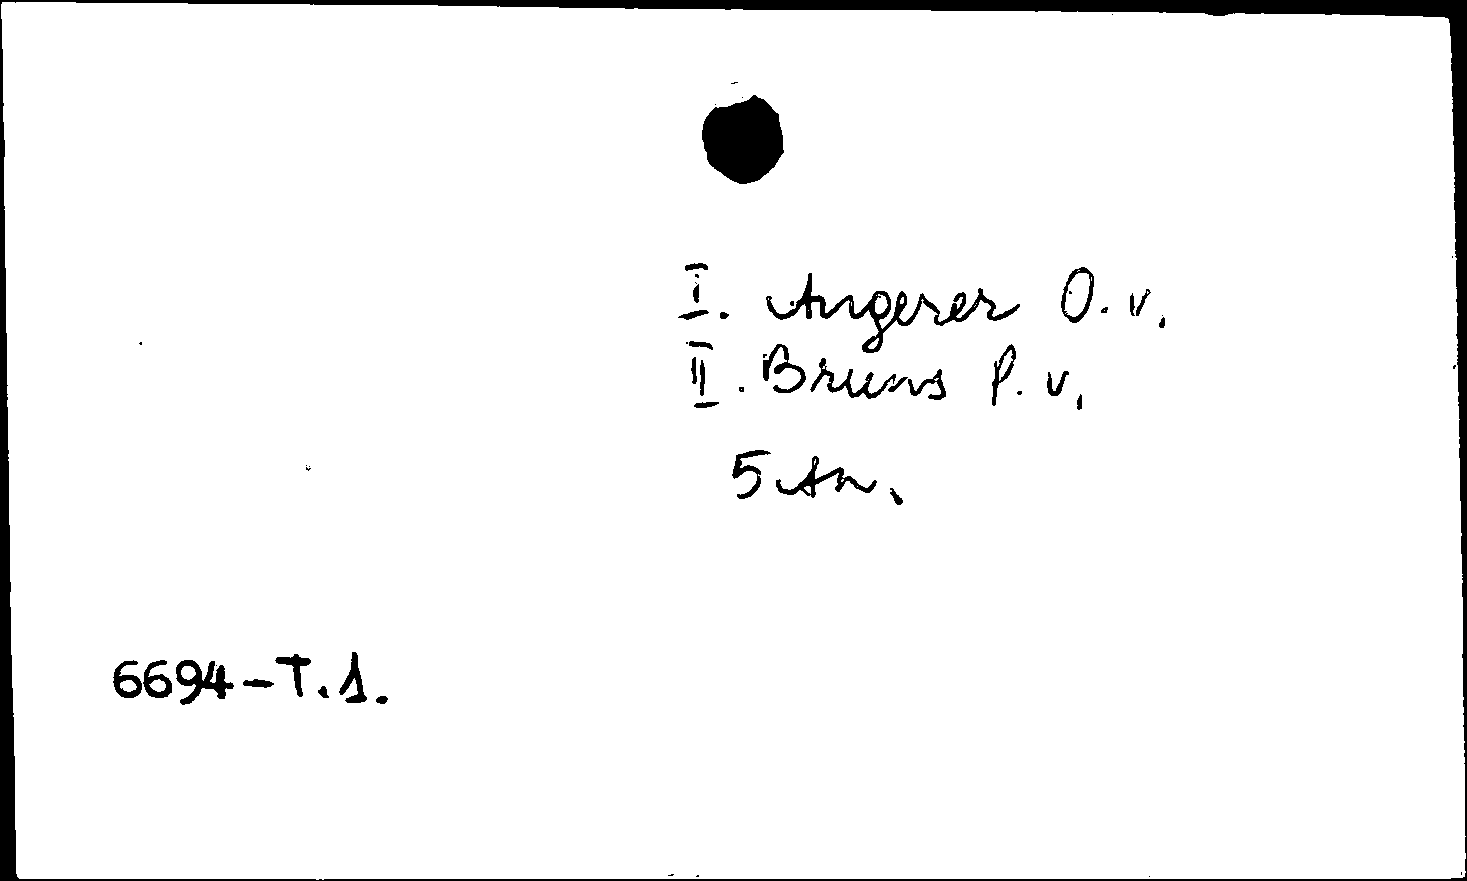 I. Angerer O. v.
II. Bruns P. v.
5 An.
6694-T.1.